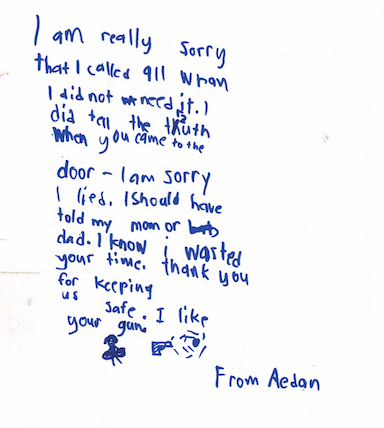 I am really sorry
that I called 911 whan
I did not need it. I
did tell the truth
when you came to the
door - I am sorry
I lied. I should have
told my mom or
dad. I know i wasted
your time. thank you
for keeping
us safe. I like
your gun.
From Aedan